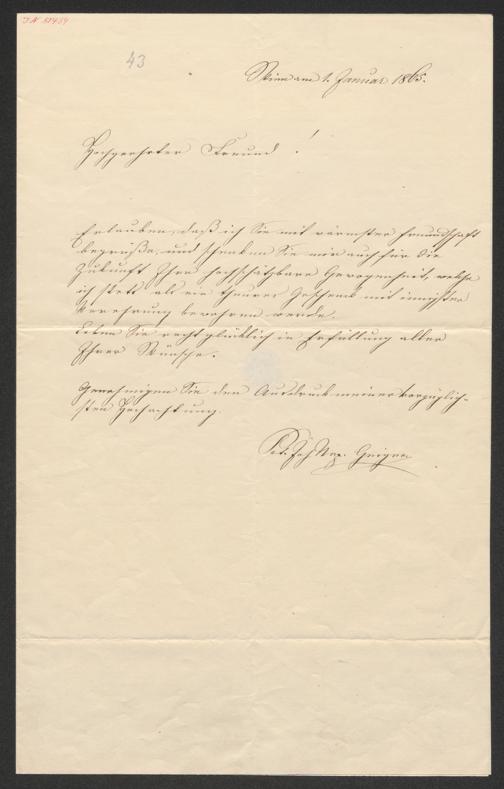 IN 51434
43
Wien am 1. Januar 1865.
Hochgeehrter Freund!
Erlauben, daß ich Sie mit wärmster Freundschaft
begrüße, und schenken Sie mir auch für die
Zukunft Ihre hochschätzbare Gewogenheit, welche
ich stets als ein theures Geschenk mit innigster
Verehrung bewahren werde.
Leben Sie recht glücklich in Erfüllung aller
Ihrer Wünsche.
Genehmigen Sie den Ausdruck meiner vorzüglich-
sten Hochachtung.
Pet. Joh. Nep. Geiger